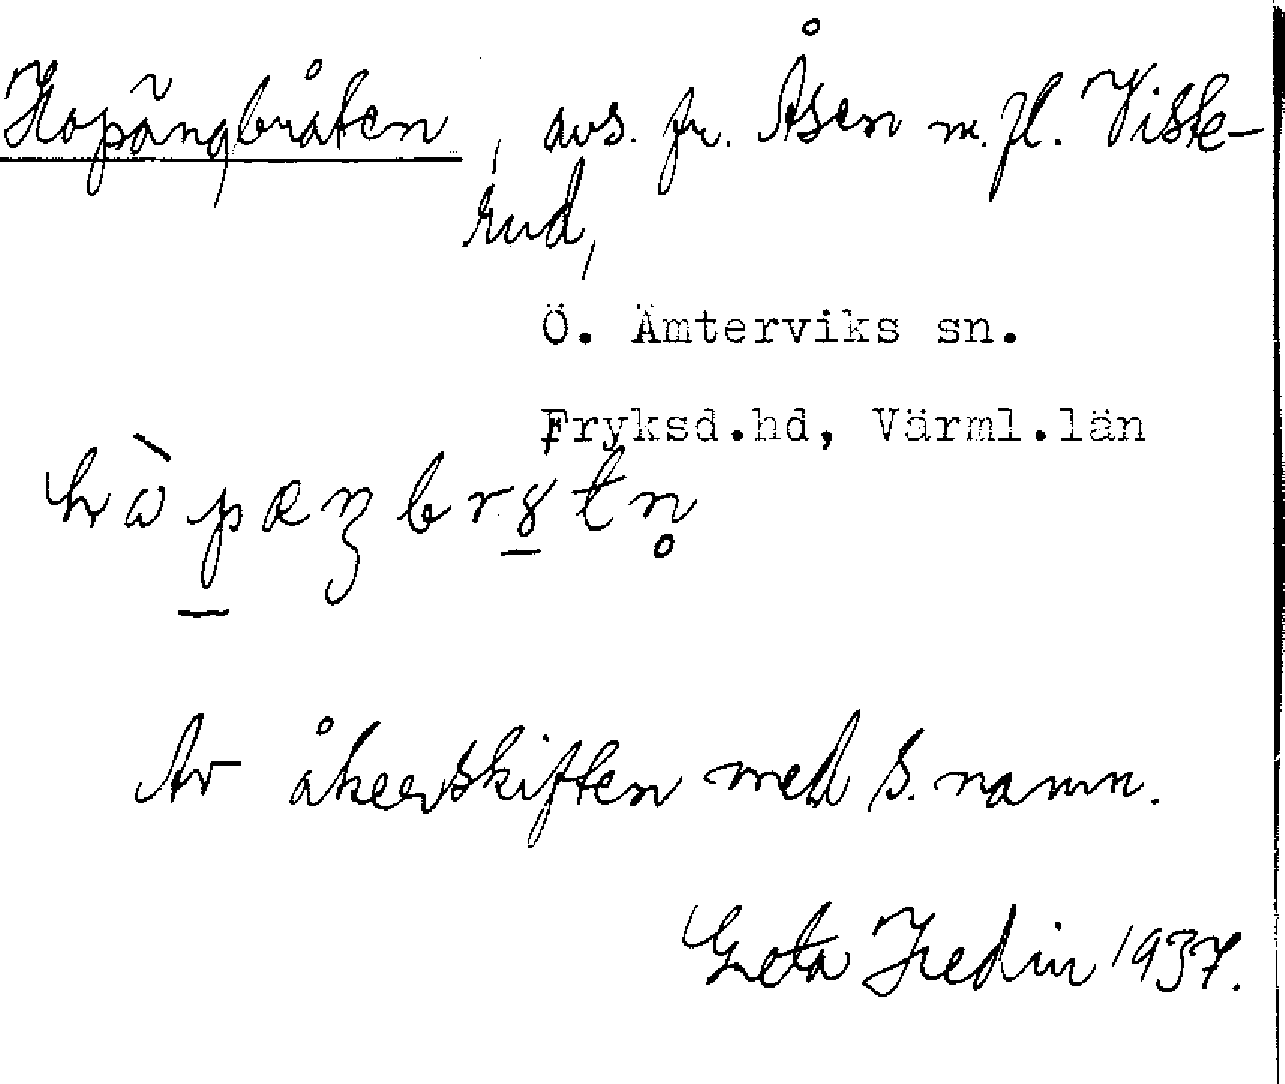 Hopängbråten, avs. fr. Åsen m.fl. Viste-
rud,
Ö. Ämterviks sn.
Fryksd.hd, Värml.län
Av åkerskiften med s. namn.
Greta Hedin 1937.